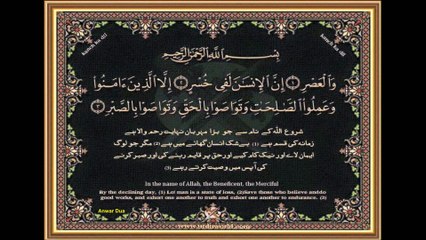 بِسْمِ اللَّهِ الرَّحْمَٰنِ الرَّحِيمِ
وَالْعَصْرِ ۝١ إِنَّ الْإِنسَٰنَ لَفِى خُسْرٍ ۝٢ إِلَّا الَّذِينَ ءَامَنُوا۟
وَعَمِلُوا۟ الصَّٰلِحَٰتِ وَتَوَاصَوْا۟ بِالْحَقِّ وَتَوَاصَوْا۟ بِالصَّبْرِ ۝٣
شروع اللہ کے نام سے جو بڑا مہربان نہایت رحم والا ہے
زمانہ کی قسم ہے (۱) بے شک انسان گھاٹے میں ہے (۲) مگر جو لوگ
ایمان لائے اور نیک کام کیے اور حق پر قائم رہنے کی اور صبر کرنے
کی آپس میں وصیت کرتے رہے (۳)
In the name of Allah, the Beneficent, the Merciful
By the declining day, (1) Lo! man is a state of loss, (2)Save those who believe anddo
good works, and exhort one another to truth and exhort one another to endurance. (3)
Anwar Dua